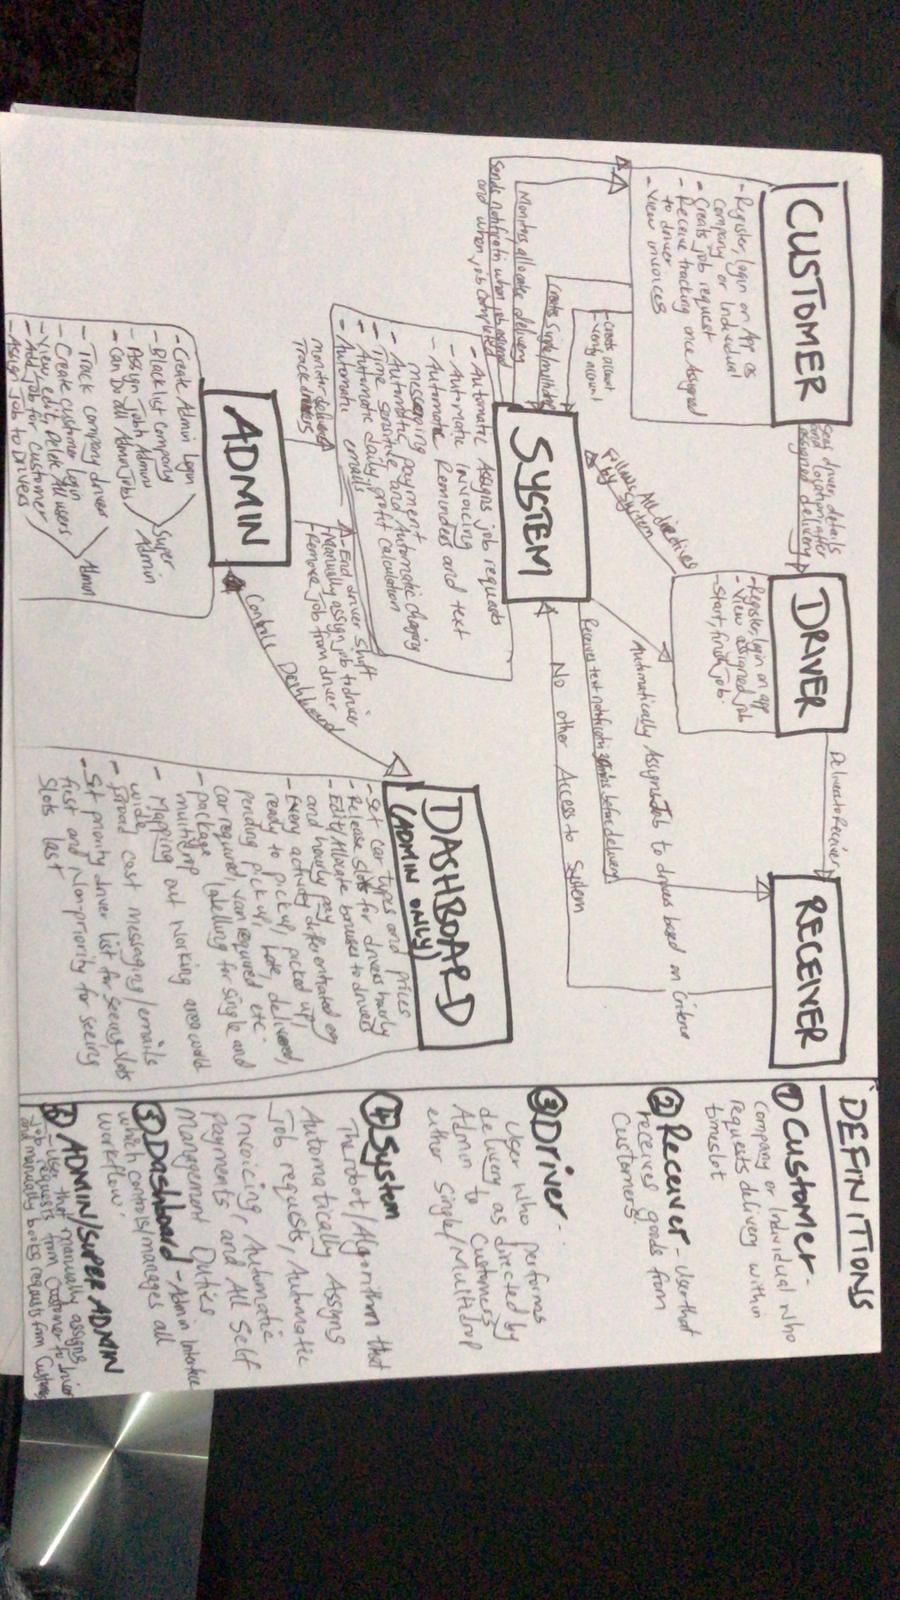 CUSTOMER
- Register, login on App as
company or Individual
- Creats job request
- Receive tracking once Assigned
to driver
- View invoices
Sees driver, details
and location after
assigned delivery
DRIVER
- Register, login on app
- View assigned job
- Start, finish job.
Delivers to Receiver
RECEIVER
- Create account
- verify account
Creates Single/multidrop
Monitors, allocate delivery
Sends notification when job assigned
and when job completed
Follows All directives
by System
SYSTEM
- Automatic Assigns job requests
- Automatic invoicing
- Automatic Reminders and text
messaging
- Automatic payment
- Time sensitive and Automatic charging
- Automatic daily profit calculation
- Automatic emails
Automatically Assigns Job to drivers based on Criteria
Receives text notification before delivery
No other Access to System
monitor delivery
Track drivers
- End driver shift
- Manually assign job to driver
- Remove job from driver
ADMIN
- Create Admin Login
- Black list Company
- Assign Job to Admin
- Can Do all Admin Jobs
Super
Admin
- Track company drivers
- Create customer login
- View, edit, Delete All users
- Add Job for Customer
- Assign Job to Drivers
Admin
Controls Dashboard
DASHBOARD
(ADMIN ONLY)
- Set car types and prices
- Release slots for drivers hourly
- Edit/Allocate bonuses to drivers
and hourly pay
- Every activity differentiated eg
ready to pick up, picked up,
pending pick up, late, delivered,
car required, van required etc
- package labelling for single and
multidrop
- Mapping out working area world
wide
- Broad cast messaging/emails
- Set priority driver list for seeing slots
first and Non-priority for seeing
Slots last
DEFINITIONS
① Customer -
company or Individual who
requests delivery within
timeslot
② Receiver - User that
receives goods from
Customers
③ Driver -
User who performs
delivery as directed by
Admin to Customers
either Single/Multidrop
④ System
The robot/Algorithm that
Automatically Assigns
Job requests, Automatic
Invoicing, Automatic
Payments and All Self
Management Duties
⑤ Dashboard - Admin Interface
which controls/manages all
workflow.
ADMIN/SUPER ADMIN
- User that manually assigns
job requests from Customer to Driver
and manually books requests from Customers